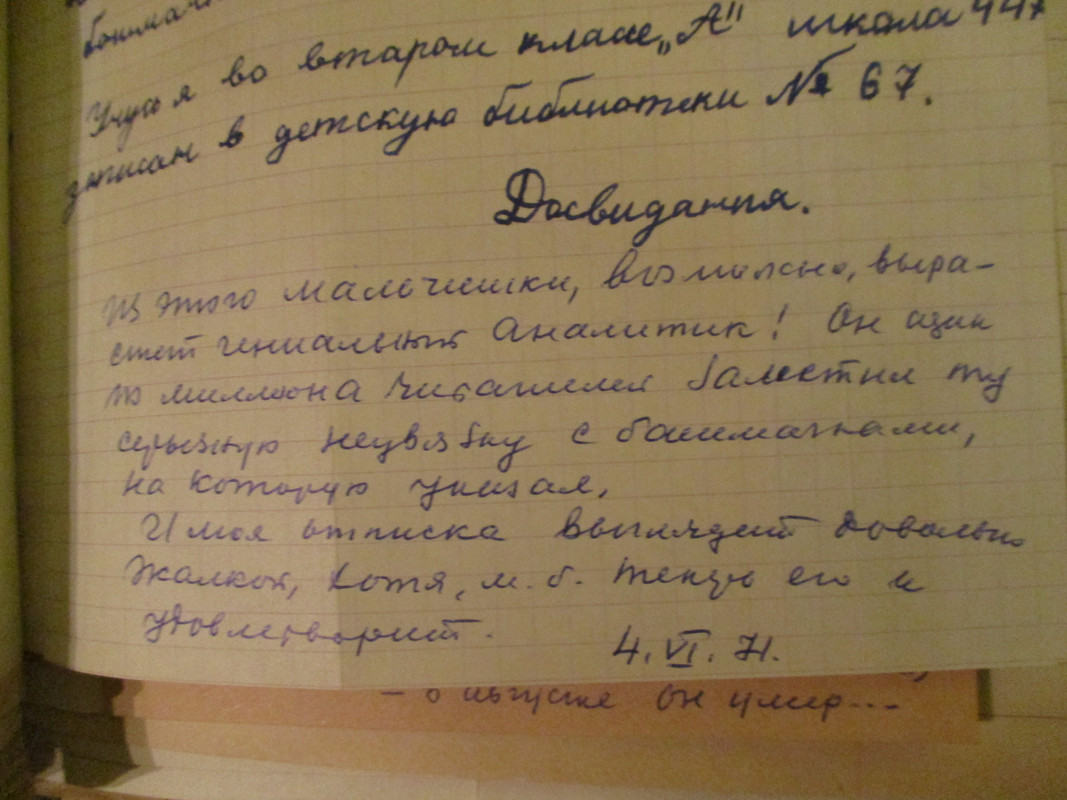 Учусь я во втаром класе „А" школа 447
записан в детскую библиотеки № 67.
Досвидания.
Из этого мальчишки, возможно, выра-
стет гениальный аналитик! Он один
из миллиона читателей заметил ту
серьёзную неувязку с башмачками,
на которую указал.
И моя отписка выглядит довольно
жалкой, хотя, м.б. Женю его и
удовлетворит.
4.VI.71.
– в августе он умер...